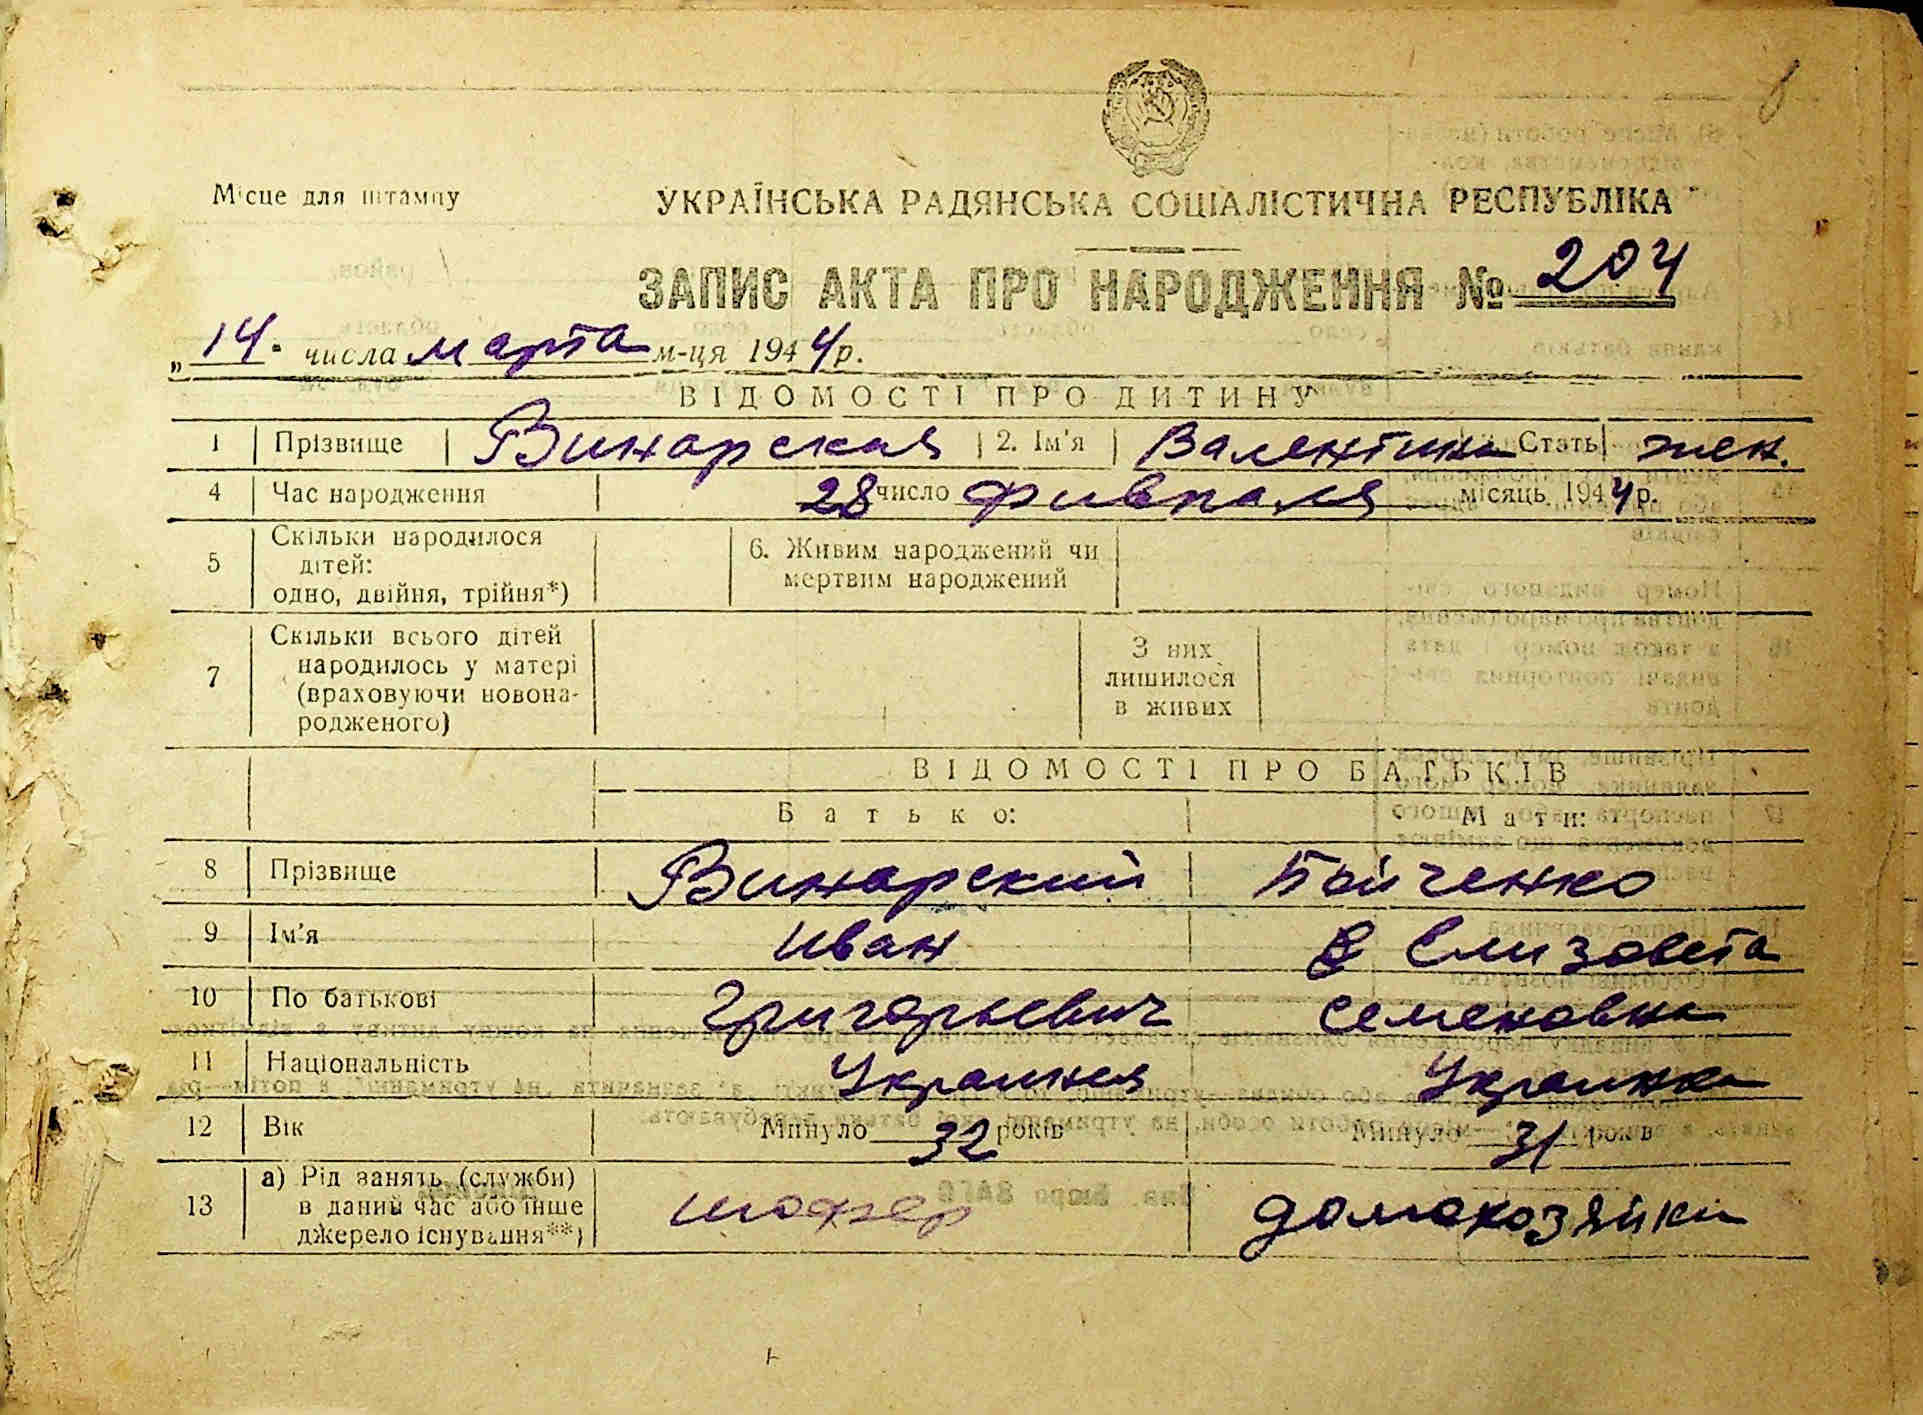 Місце для штампу
УКРАЇНСЬКА РАДЯНСЬКА СОЦІАЛІСТИЧНА РЕСПУБЛІКА
ЗАПИС АКТА ПРО НАРОДЖЕННЯ № 204
„ 14. числа марта м-ця 1944 р.
ВІДОМОСТІ ПРО ДИТИНУ
1 Прізвище Винарская 2. Ім'я Валентина Стать жен.
4 Час народження 28 число фивраля місяць 1944 р.
5 Скільки народилося дітей: одно, двійня, трійня*) 6. Живим народжений чи мертвим народжений
7 Скільки всього дітей народилось у матері (враховуючи новонародженого) З них лишилося в живих
ВІДОМОСТІ ПРО БАТЬКІВ
Батько: Мати:
8 Прізвище Винарский Бойченко
9 Ім'я Иван Елизовета
10 По батькові Григорьевич Семеновна
11 Національність Украинец Украинка
12 Вік Минуло 32 років Минуло 31 років
13 а) Рід занять (служби) в даний час або інше джерело існування**) шофер домохозяйка